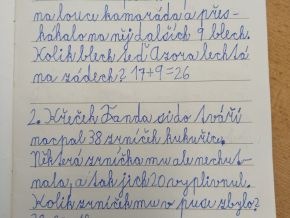 na louce kamaráda a přes-
kákalo na něj dalších 9 blech.
Kolik blech teď Azora lechtá
na zádech? 17+9=26
2. Křeček Fanda si do tváří
nacpal 38 zrníček kukuřice.
Některá zrníčka mu ale nechut-
nala, a tak jich 20 vyplivnul.
Kolik zrníček mu v puse zbylo?